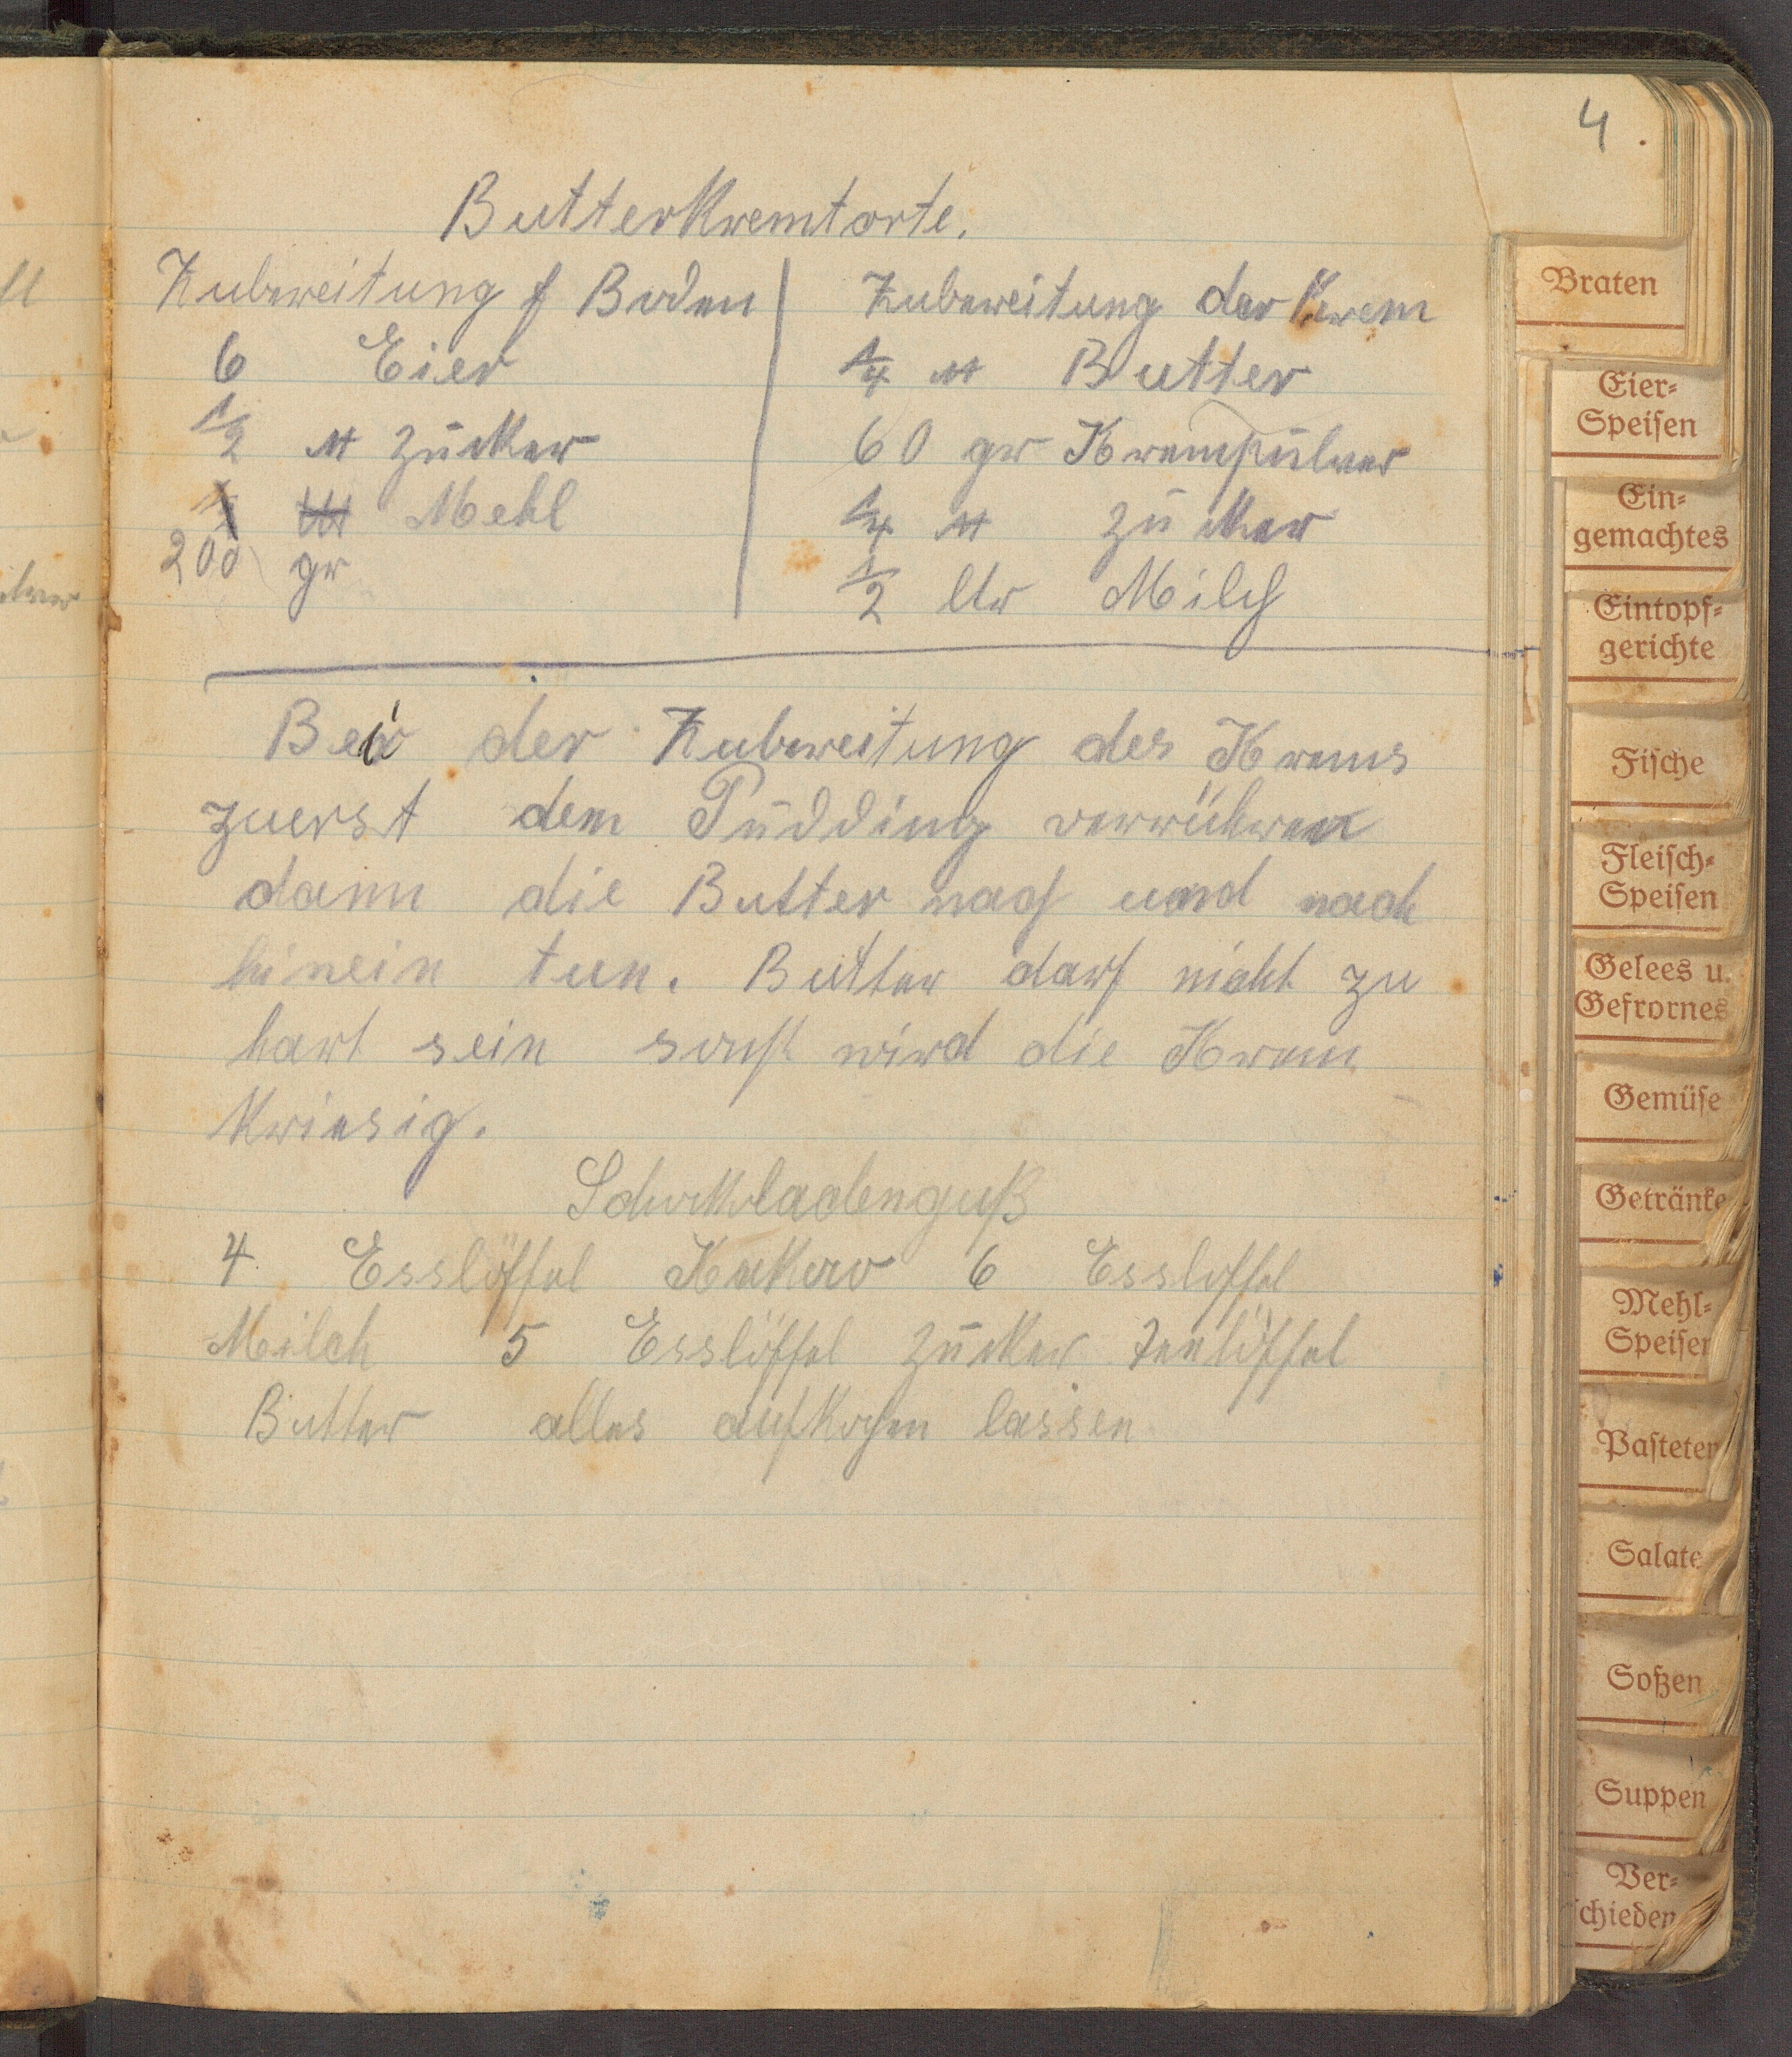 4
Butterkremtorte.
Zubereitung f Boden
6 Eier
1/2 ℔ Zucker
Mehl
200 gr
Zubereitung der Krem
1/4 ℔ Butter
60 gr Krempulver
1/4 ℔ Zucker
1/2 ltr Milch
Bei der Zubereitung des Krems
zuerst dem Pudding verrühren
dann die Butter nach und nach
hinein tun. Butter darf nicht zu
hart sein sonst wird die Krem
kriesig.
Schokoladenguß
4 Esslöffel Kakao 6 Essloffel
Milch 5 Esslöffel Zucker Teelöffel
Butter alles aufkochen lassen
Braten
Eier-
Speisen
Ein-
gemachtes
Eintopf-
gerichte
Fische
Fleisch-
Speisen
Gelees u.
Gefrornes
Gemüse
Getränke
Mehl-
Speisen
Pasteten
Salate
Soßen
Suppen
Ver-
schieden